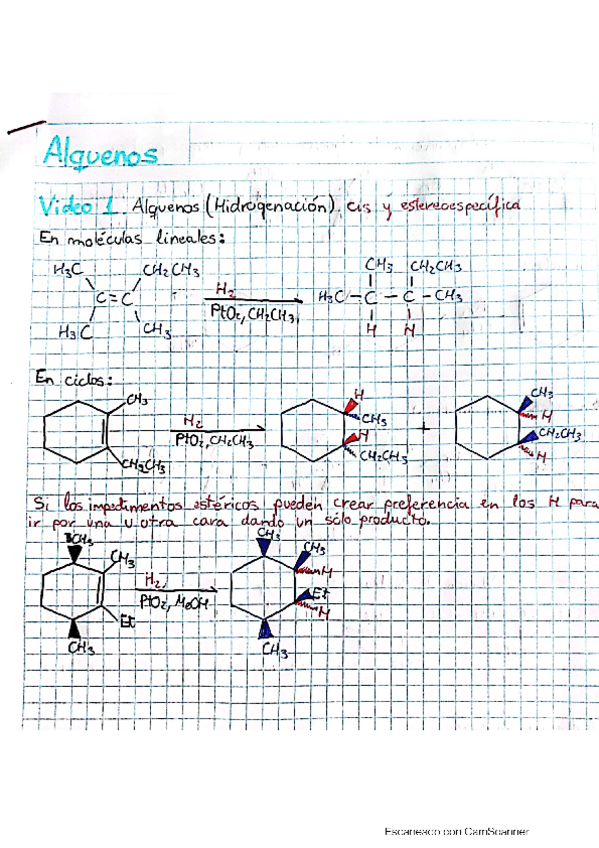 Alquenos
Video 1 Alquenos (Hidrogenación) cis y estereoespecífica
En moléculas lineales:
H3C CH2CH3 H2 CH3 CH2CH3
C=C H3C-C-C-CH3
H3C CH3 PtO2, CH2CH3 H H
En ciclos:
CH3 H2 H CH3 CH3 H
PtO2, CH2CH3 H + CH2CH3
CH2CH3 CH2CH3 H
Si los impedimentos estéricos pueden crear preferencia en los H para
ir por una u otra cara dando un sólo producto.
CH3 CH3 H2 CH3 CH3 H
PtO2, MeOH Et H
Et
CH3 CH3
Escaneado con CamScanner